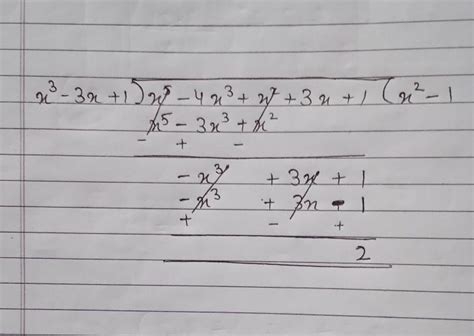 x³ - 3x + 1 ) x⁵ - 4x³ + x² + 3x + 1 ( x² - 1
x⁵ - 3x³ + x²
- + -
- x³ + 3x + 1
- x³ + 3x - 1
+ - +
2